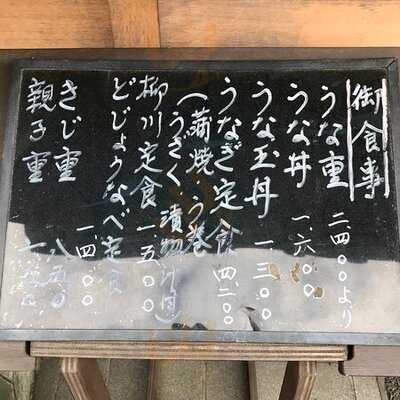 御食事
うな重 二四〇〇より
うな丼 一.六〇〇
うな玉丼 一三〇〇
うなぎ定食 四.二〇〇
(蒲焼、う巻
うざく、漬物汁付)
柳川定食 一五〇〇
どじょうなべ定食 一.四〇〇
きじ重 八五〇
親子重